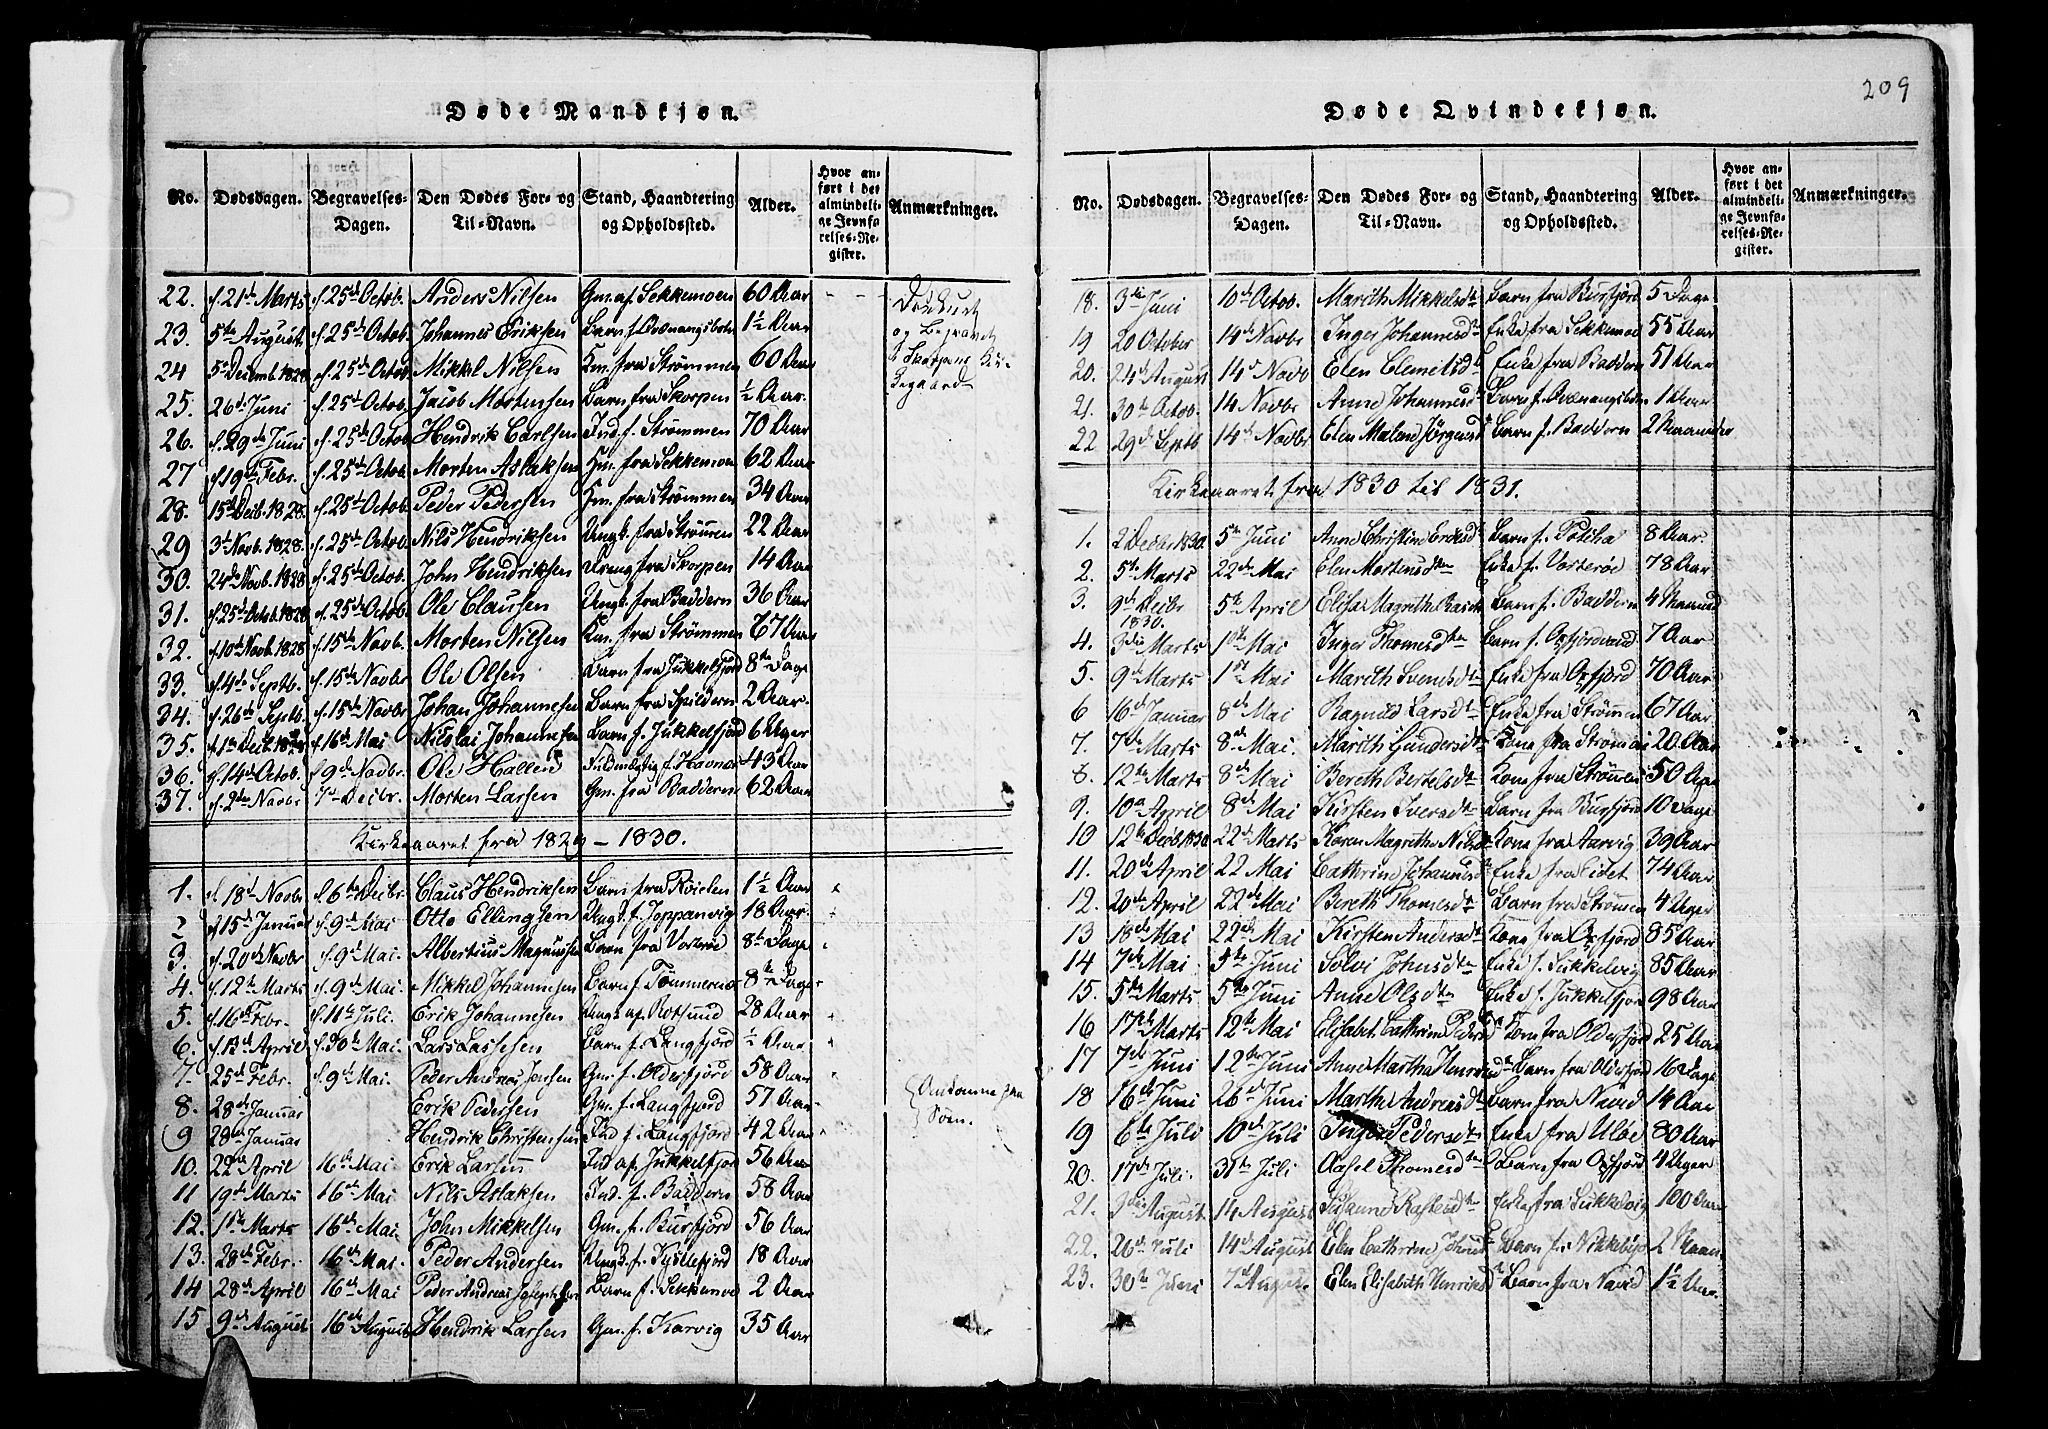 209
Døde Mandkjøn.
No. Dødsdagen. Begravelses-Dagen. Den Dødes For- og Til-Navn. Stand, Haandtering og Opholdssted. Alder. Hvor anført i det almindelige Jevnførelses-Register. Anmærkninger.
22. d. 21de Marts d. 25de Octob. Anders Nilsen Gm. af Sekkemoen 60 Aar
og Begravet
23. 5te August d. 25de Octob. Johannes Eriksen Barn f. Qvænangsbotn 1½ Aar
24 5te Decemb. 1828 d. 25de Octob. Mikkel Nilsen Km. fra Strømmen 60 Aar
25. 26d Juni d. 25de Octob. Jacob Mortensen Barn fra Skorpen ½ Aar.
26. d. 29de Juni d. 25de Octob Hendrik Carlsen Ind. f. Strømmen 70 Aar
27 d. 19de Febr. d. 25de Octob. Morten Aslaksen Km. fra Sekkemoen 62 Aar
28. 15de Decb. 1828. d. 25de Octob Peder Pedersen Km. fra Strømmen 34 Aar
29 3d Novb. 1828. d. 25de Octob. Nils Hendriksen Ungk. fra Strømen 22 Aar
30. 24de Novb. 1828 d. 25de Octob. John Hendriksen Dreng fra Skorpen 14 Aar
31. d. 25de Octob. 1828 d. 25de Octob. Ole Clausen Ungk. fra Baddern 36 Aar
32. d. 10de Novb. 1828 d. 15de Novb. Morten Nilsen Km. fra Strømmen 67 Aar
33. d. 4de Septb. d. 15de Novbr Ole Olsen Barn fra Jukkelfjord 8te Dage
34. d. 26de Septb. d. 15de Novbr Johan Johannesen Barn fra Spildern 2 Aar.
35. d. 1te Decb. 1828 d. 16de Mai Nikolai Johannesen Barn f. Jukkelfjord 6 Uger
36. d. 14de Octob. d. 9de Novbr. Ole Hallen f. Havnæs 43 Aar
37. d. 2den Novbr 7de Decbr. Morten Larsen Gm. fra Baddern 62 Aar
Kirkeaaret fra 1829 – 1830.
1. d. 18d Novbr d. 6te Decbr. Claus Hendriksen Barn fra Roielen 1½ Aar
2 d. 15de Januar d. 9de Mai Otto Ellingsen Ungk. f. Joppanvig 18 Aar
3. d. 20d Novbr d. 9de Mai. Albertius Magnussen Barn fra Vorterøe 8te Dage
4. d. 12te Marts d. 9de Mai. Mikkel Johannesen Barn f. Tømmernæs 8te Dage
5. d. 16de Febr. d. 11te Juli. Erik Johannesen Ungk. af Rotsund 28 Aar
6. d. 13de April d. 30te Mai. Lars Lassesen Barn f. Langfjord ½ Aar
7. 25de Febr. d. 9de Mai. Peder Andreas Jensen Gm. f. Olderfjord 58 Aar
8. 28de Januar Erik Pedersen Gm. f. Langfjord 57 Aar Omkomne paa
9 28de Januar Hendrik Christensen Ind f. Langfjord 42 Aar Søen.
10. 22de April 16de Mai. Erik Larsen Ind af Jukkelfjord 56 Aar
11 19de Marts 16de Mai Nils Aslaksen Ind. f. Baddern 58 Aar
12. 1ste Marts 16de Mai. John Mikkelsen Gm. f. Burfjord 56 Aar
13. 28de Febr. 16de Mai. Peder Andersen Ungk. f. Kjøllefjord 18 Aar
14 28de April 16de Mai Peder Andreas Josephsen Barn f. Sekkemoe 2 Aar
15 9de August 16de August Hendrik Larsen Gm. f. Karvig 35 Aar
Døde Qvindekjøn.
No. Dødsdagen. Begravelses-Dagen. Den Dødes For- og Til-Navn. Stand, Haandtering og Opholdssted. Alder. Hvor anført i det almindelige Jevnførelses-Register. Anmærkninger.
18. 3die Juni 10de Octob. Marith Mikkelsdtr Barn fra Burfjord 5 Dage
19 20 October 14de Novbr Inger Johannesdtr Enke fra Sekkemoe 55 Aar
20. 24de August 14de Novb Elen Clemetsdtr Enke fra Baddern 51 Aar
21. 30te Octob. 14 Novbr Anne Johannesdtr Barn f. Qvænangsbotn 1 Aar
22 29de Septb 14de Novbr Elen Malene Jørgensdtr Barn f. Baddern 2 Maaneder
Kirkeaaret fra 1830 til 1831.
1. 2 Decbr 1830. 5te Juni Anne Christine Eriksdtr Barn f. Potcha 8 Aar.
2. 5te Marts 22de Mai Elen Mortensdtr Enke f. Vorterøe 78 Aar
3. 9de Decbr 1830. 5te April Elisa Magrethe Rasch Barn f. Baddern 4 Maaned
4. 3die Marts 1ste Mai Inger Thomesdtr Barn f. Oxfjordvand 7 Aar
5. 9de Marts 1ste Mai Marith Svensdtr Enke fra Oxfjord 70 Aar
6 16de Januar 8de Mai Ragnild Larsdtr Enke fra Strømen 67 Aar
7. 7de Marts 8de Mai. Marith Gundersdtr Kone fra Strømen 20 Aar
8. 12te Marts 8de Mai Bereth Bertelsdtr Kone fra Strømen 50 Aar
9. 10de April 8de Mai Kirsten Iversdtr Barn fra Burfjord 10 Dage
10 12te Decb 1830 22de Marts Karen Magrethe Nilsdtr Kone fra Aarvig 39 Aar
11. 20de April 22 Mai Cathrine Johannesdtr Enke fra Eidet 74 Aar
12. 20de April 22de Mai Bereth Thomesdtr Barn fra Strømen 4 Uger
13 18de Mai 22de Mai Kirsten Andersdtr Kone fra Oxfjord 85 Aar
14 7de Mai 5te Juni Solvi Johnsdtr Enke f. Sukkelvig 85 Aar
15. 5te Marts 5te Juni Anne Olsdtr Enke f. Jukkelfjord 98 Aar
16 17de Marts 12te Mai Elisabet Cathrine Pedersdtr Kone fra Olderfjord 25 Aar
17 7de Juni 12te Juni Anne Martha Henriksdtr Barn fra Olderfjord 16 Dage
18 16de Juni 26de Juni Marthe Andreasdtr Barn fra Navid 14 Aar
19 6te Juli 10de Juli Inger Pedersdtr Enke fra Uløe 80 Aar
20. 17de Juli. 31te Juli Aasel Thomesdtr Barn fra Oxfjord 4 Uger
21. 3die August 14 August Susanne Rastesdtr Enke fra Sukkelvig 100 Aar
22. 26de Juli 14de August Elen Cathrine Johnsdtr Barn fra Nikkebye 2 Maan
23. 30te Juni 7de August Elen Elisabeth Henriksdtr Barn fra Navid 1½ Aar.